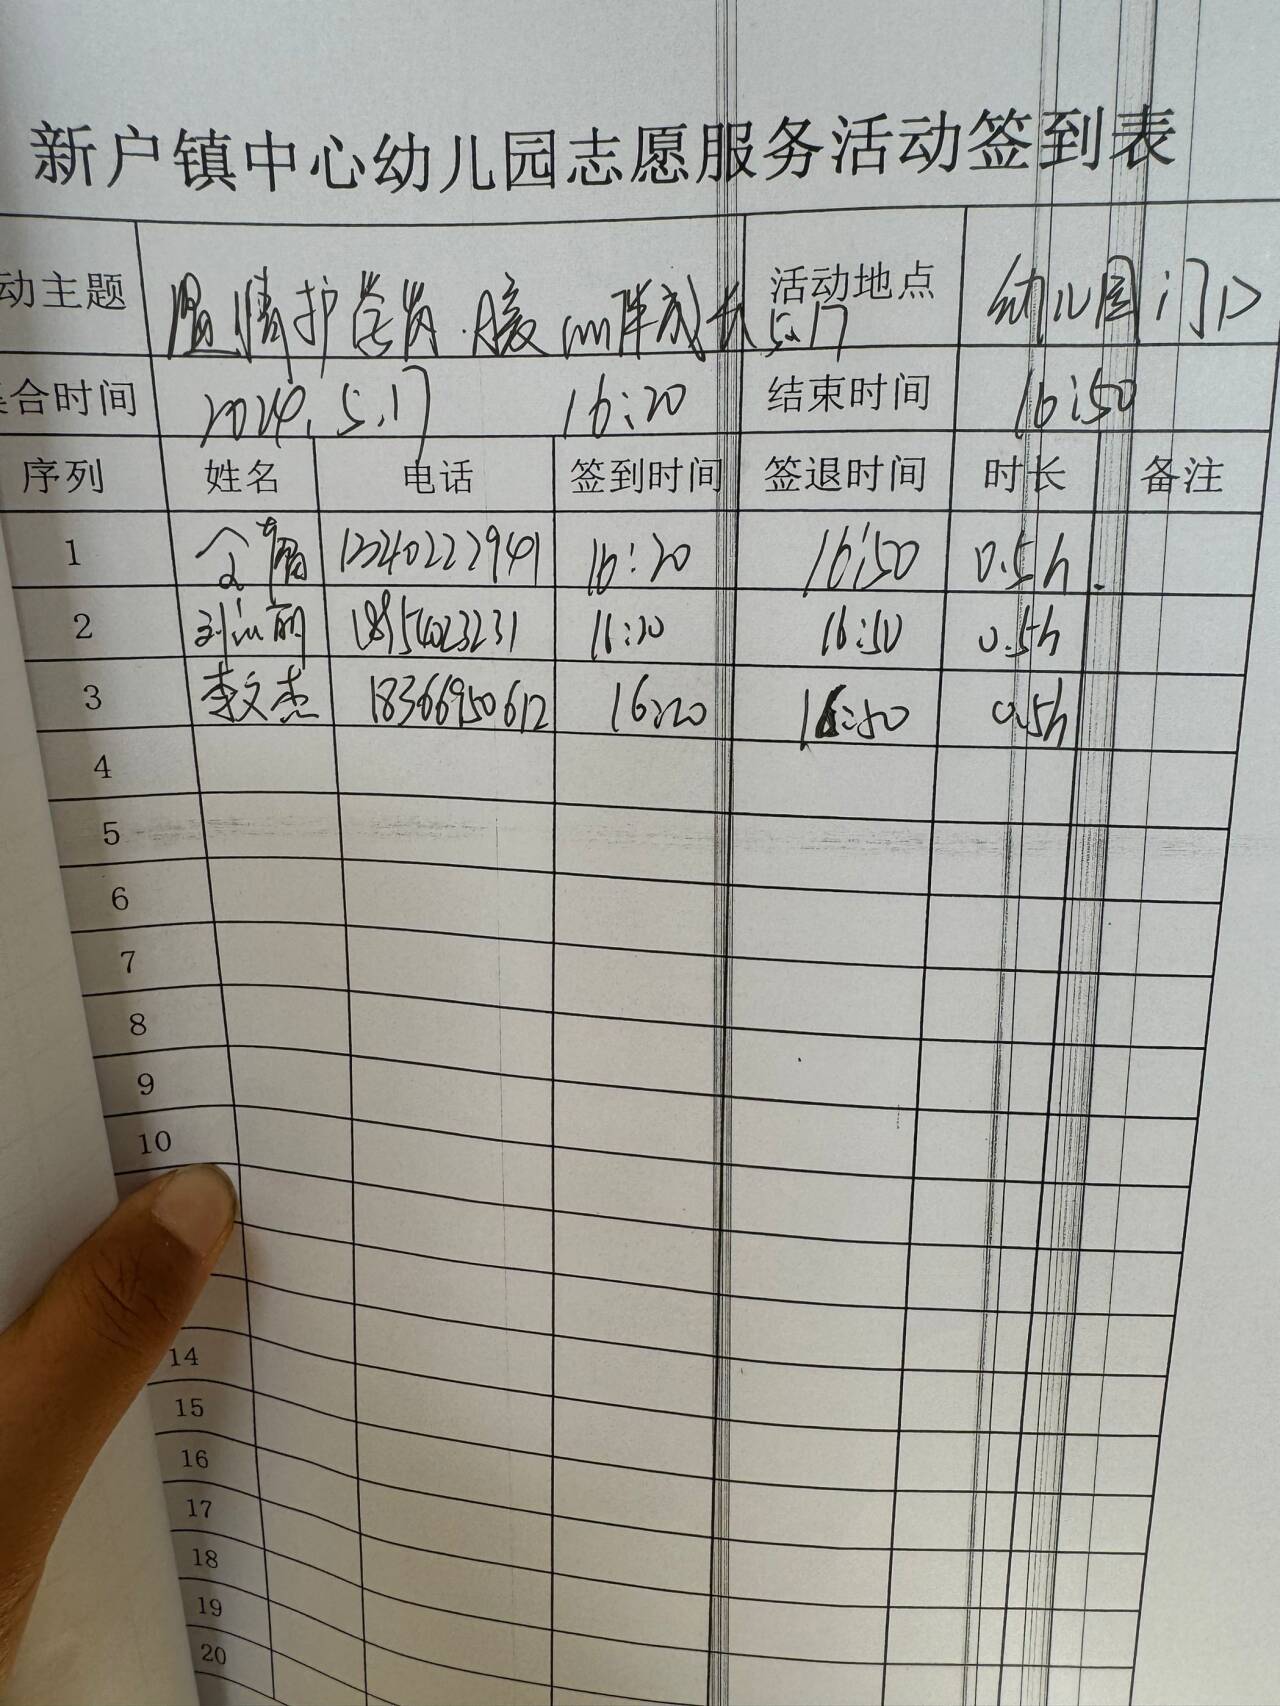 新户镇中心幼儿园志愿服务活动签到表
动主题 温情护学岗.暖心伴成长5.17 活动地点 幼儿园门口
合时间 2024.5.17 16:20 结束时间 16:50
序列 姓名 电话 签到时间 签退时间 时长 备注
1 16:20 16:50 0.5h
2 18954023231 16:20 16:50 0.5h
3 李文杰 18366950612 16:20 16:50 0.5h
4
5
6
7
8
9
10
14
15
16
17
18
19
20